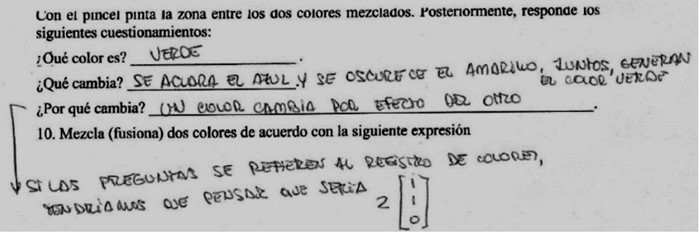 Con el pincel pinta la zona entre los dos colores mezclados. Posteriormente, responde los
siguientes cuestionamientos:
¿Qué color es? VERDE.
¿Qué cambia? SE ACLARA EL AZUL Y SE OSCURECE EL AMARILLO, JUNTOS, GENERAN
EL COLOR VERDE
¿Por qué cambia? UN COLOR CAMBIA POR EFECTO DEL OTRO.
10. Mezcla (fusiona) dos colores de acuerdo con la siguiente expresión
SI LAS PREGUNTAS SE REFIEREN AL REGISTRO DE COLORES,
TENDRÍAMOS QUE PENSAR QUE SERIA 2 [1 1 0]